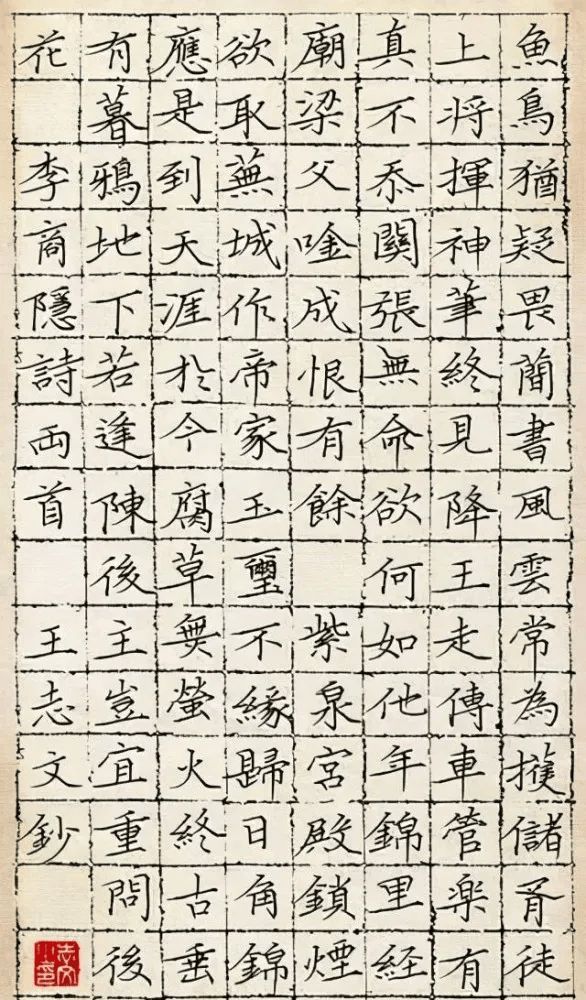 魚鳥猶疑畏蕳書風雲常為擭儲胥徒
上将揮神筆終見降王走傳車管楽有
真不忝關張無命欲何如他年錦里経
廟梁父唫成恨有餘 紫泉宮殿鎖煙
欲取蕪城作帝家玉璽不緣歸日角錦
應是到天涯於今腐草無螢火終古垂
有暮鴉地下若逢陳後主豈宜重問後
花 李商隱詩兩首 王志文鈔